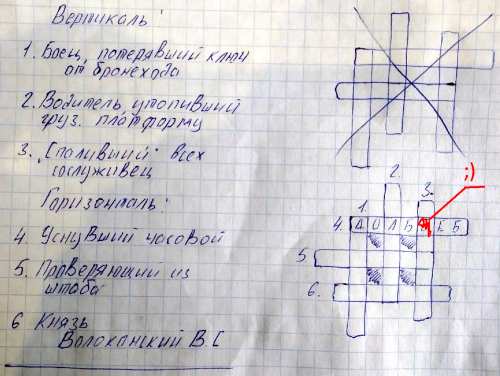 Вертикаль:
1. Боец, потерявший ключ
от бронехода
2. Водитель, утопивший
груз. платформу
3. "Спаливший" всех
сослуживец
Горизонталь:
4. Уснувший часовой
5. Проверяющий из
штаба
6 Князь
Волоканский В.С
;)
2.
1.
3.
4.
5
6.